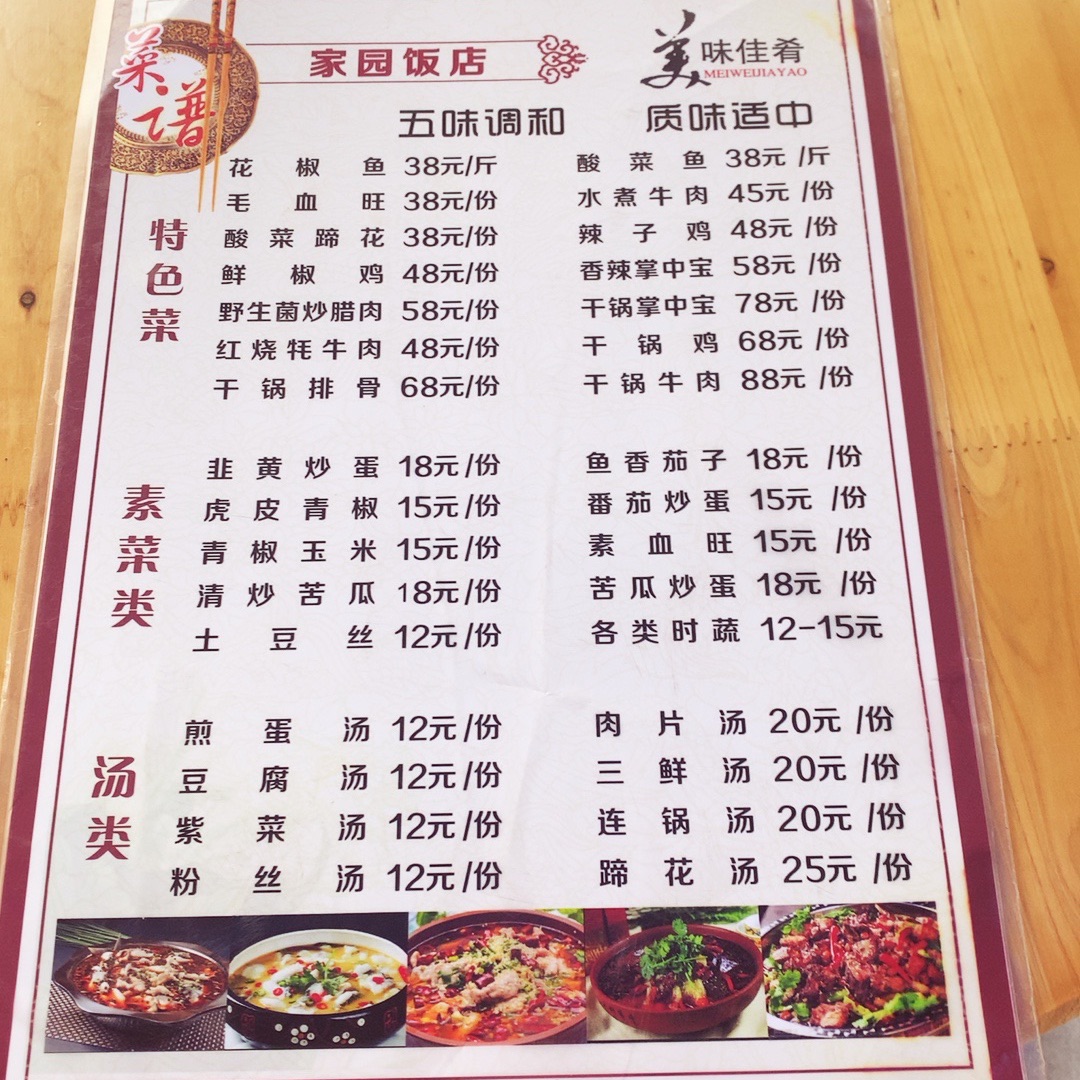 菜谱
家园饭店
美味佳肴
MEIWEIJIAYAO
五味调和 质味适中
特色菜
花椒鱼 38元/斤 酸菜鱼 38元/斤
毛血旺 38元/份 水煮牛肉 45元/份
酸菜蹄花 38元/份 辣子鸡 48元/份
鲜椒鸡 48元/份 香辣掌中宝 58元/份
野生菌炒腊肉 58元/份 干锅掌中宝 78元/份
红烧牦牛肉 48元/份 干锅鸡 68元/份
干锅排骨 68元/份 干锅牛肉 88元/份
素菜类
韭黄炒蛋 18元/份 鱼香茄子 18元/份
虎皮青椒 15元/份 番茄炒蛋 15元/份
青椒玉米 15元/份 素血旺 15元/份
清炒苦瓜 18元/份 苦瓜炒蛋 18元/份
土豆丝 12元/份 各类时蔬 12-15元
汤类
煎蛋汤 12元/份 肉片汤 20元/份
豆腐汤 12元/份 三鲜汤 20元/份
紫菜汤 12元/份 连锅汤 20元/份
粉丝汤 12元/份 蹄花汤 25元/份